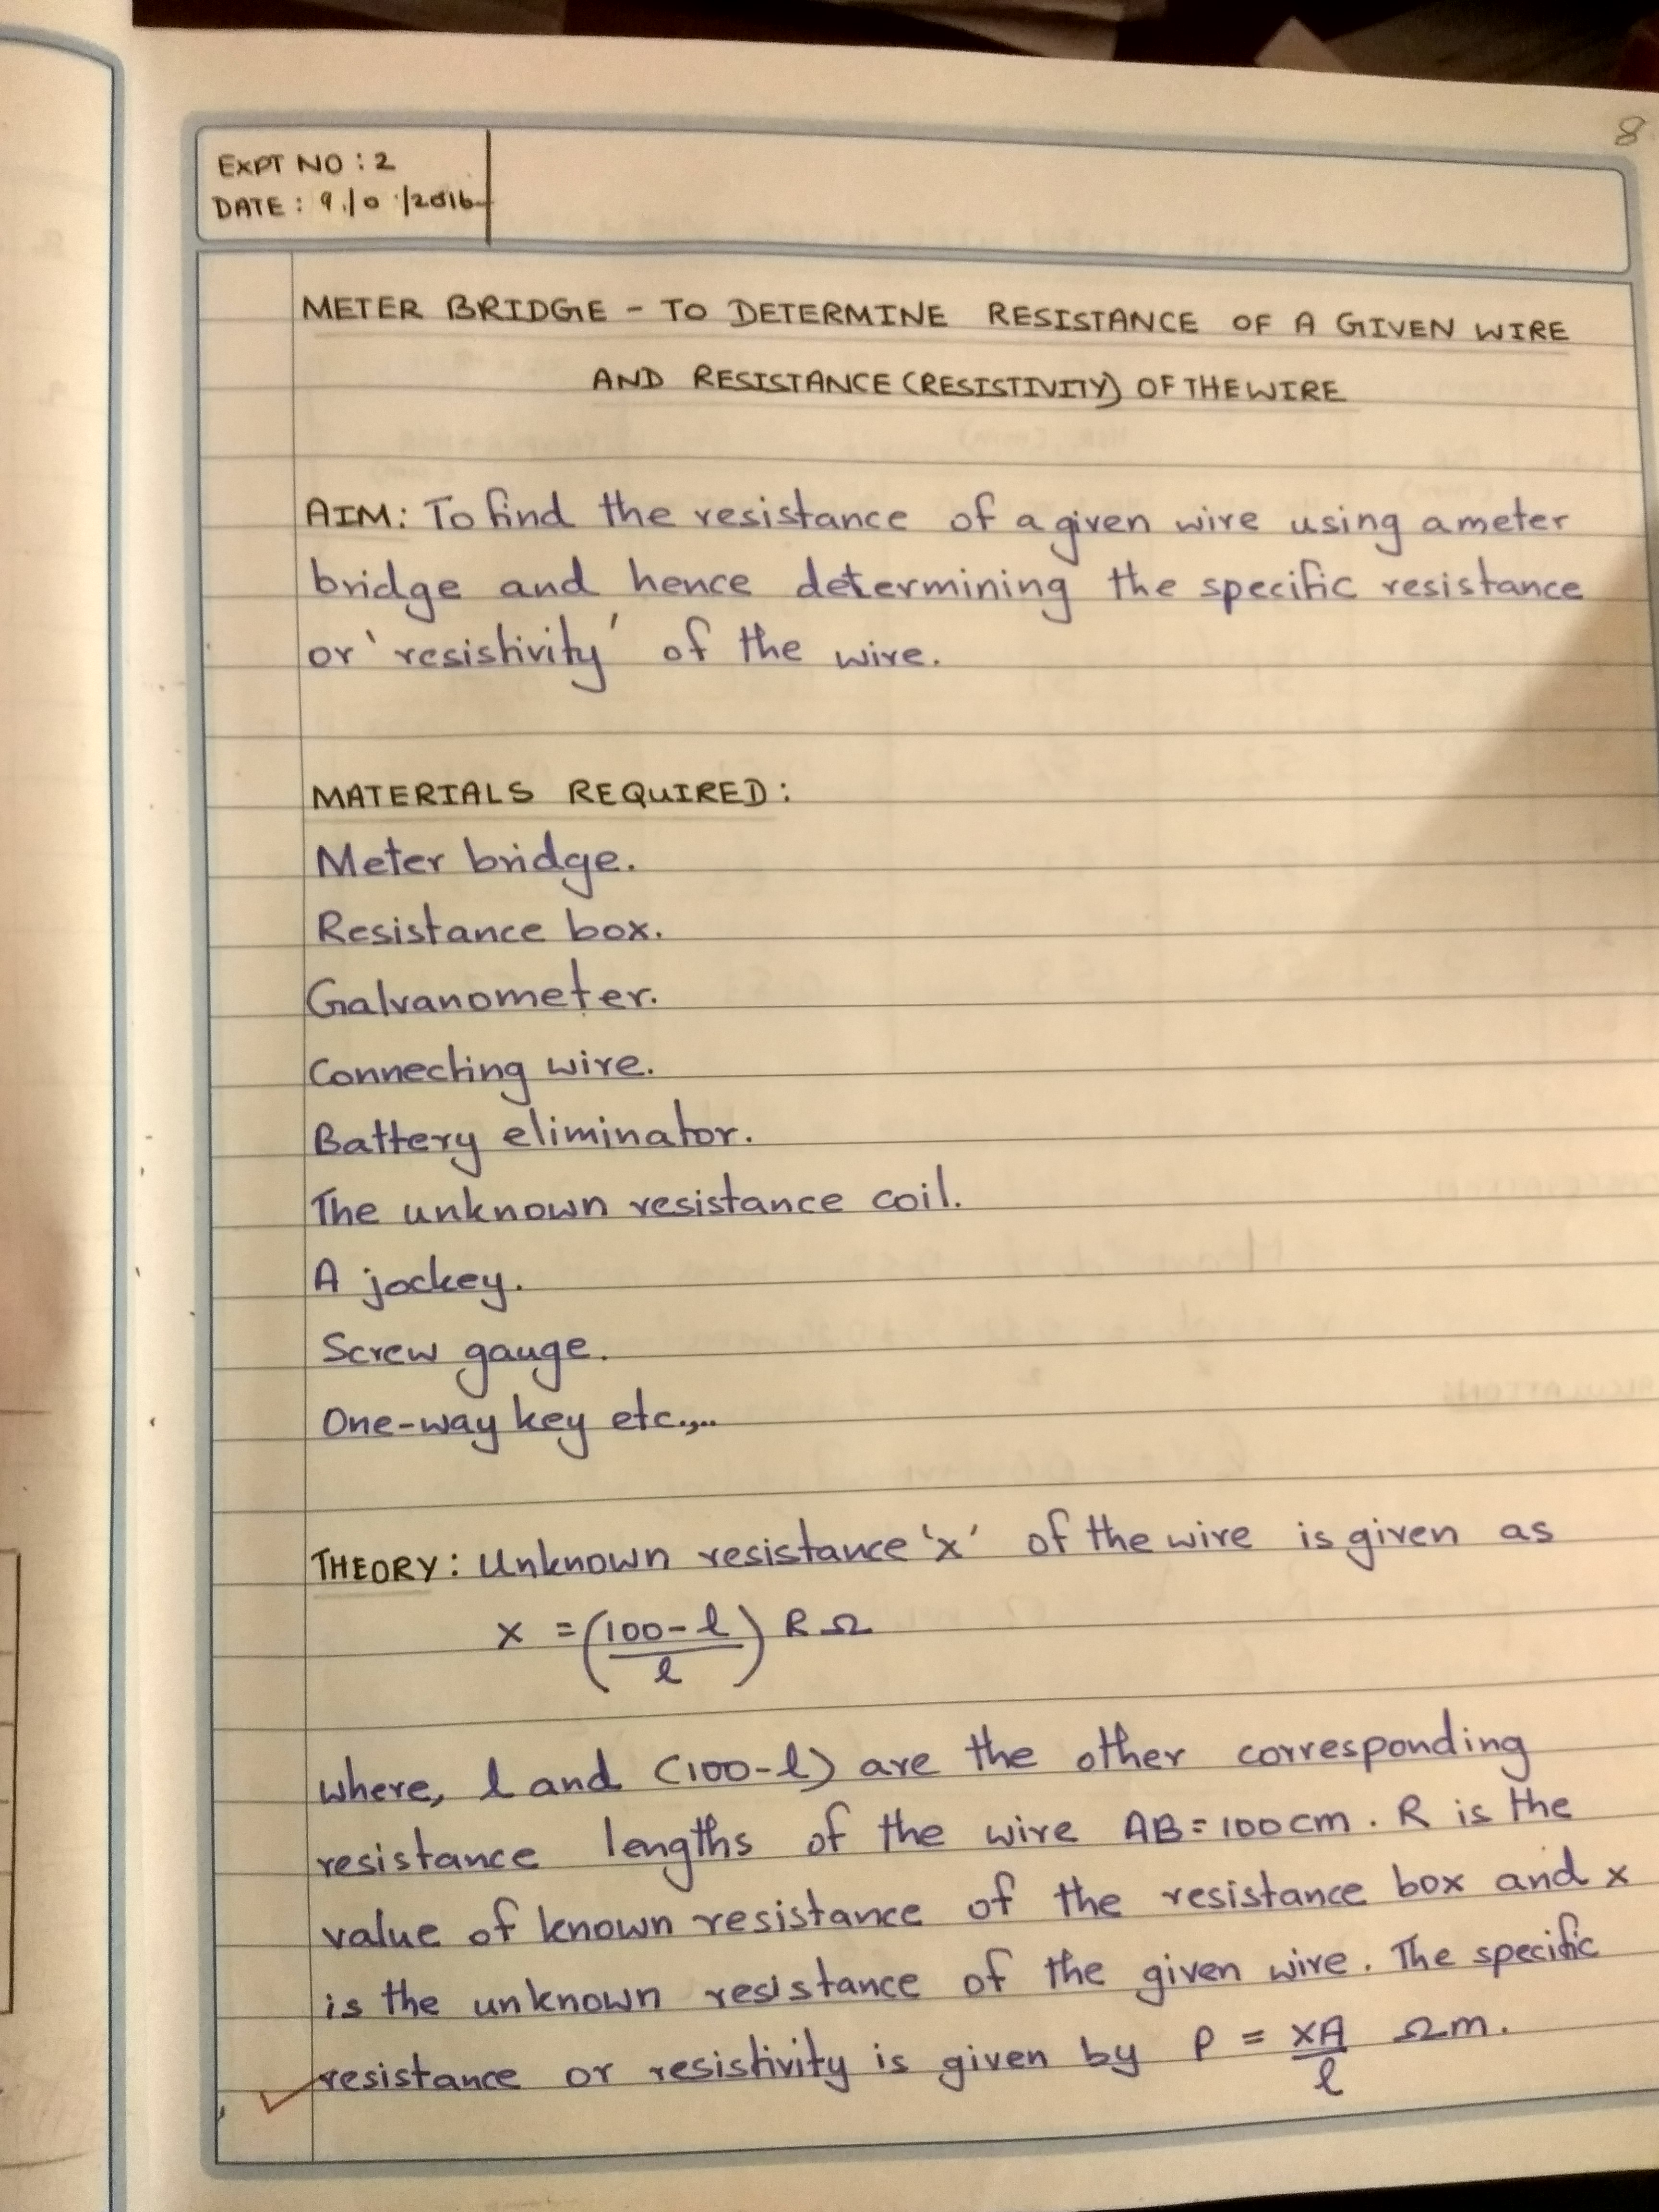 8
EXPT NO : 2
DATE : 9/0 /2016
METER BRIDGE - TO DETERMINE RESISTANCE OF A GIVEN WIRE
AND RESISTANCE (RESISTIVITY) OF THE WIRE
AIM: To find the resistance of a given wire using a meter
bridge and hence determining the specific resistance
or 'resistivity' of the wire.
MATERIALS REQUIRED:
Meter bridge.
Resistance box.
Galvanometer.
Connecting wire.
Battery eliminator.
The unknown resistance coil.
A jockey.
Screw gauge.
One-way key etc.,..
THEORY: Unknown resistance 'x' of the wire is given as
x = ((100-l)/l) R Ω
where, l and (100-l) are the other corresponding
resistance lengths of the wire AB = 100 cm. R is the
value of known resistance of the resistance box and x
is the unknown resistance of the given wire. The specific
resistance or resistivity is given by ρ = xA/l Ωm.